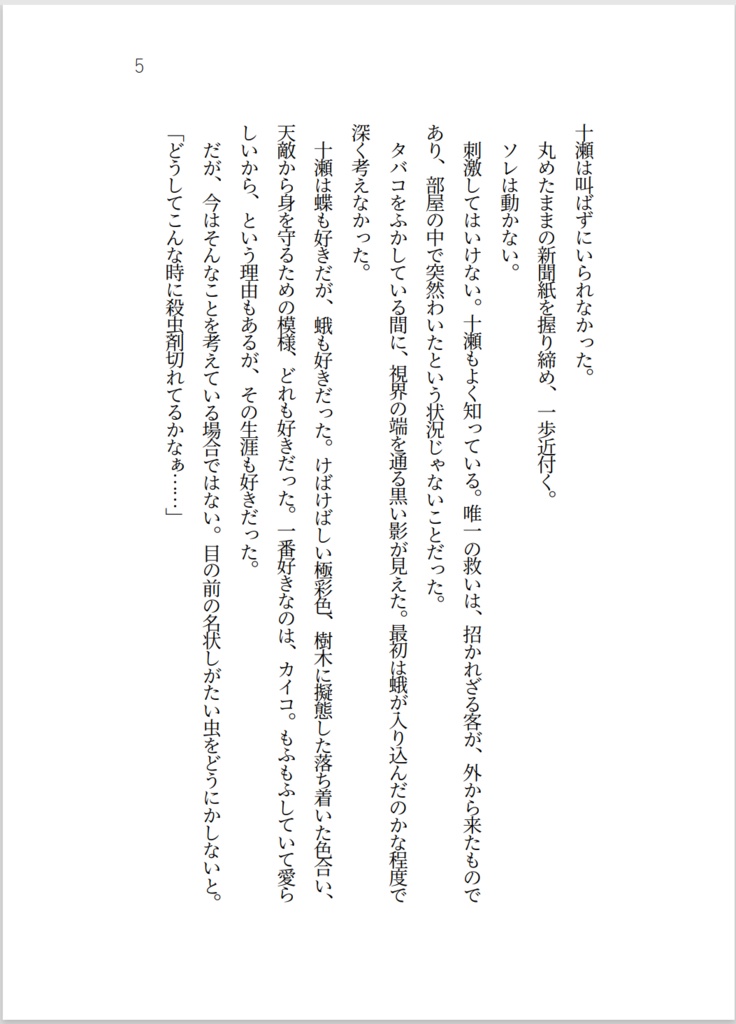 5
十瀬は叫ばずにいられなかった。
丸めたままの新聞紙を握り締め、一歩近付く。
ソレは動かない。
刺激してはいけない。十瀬もよく知っている。唯一の救いは、招かれざる客が、外から来たもので
あり、部屋の中で突然わいたという状況じゃないことだった。
タバコをふかしている間に、視界の端を通る黒い影が見えた。最初は蛾が入り込んだのかな程度で
深く考えなかった。
十瀬は蝶も好きだが、蛾も好きだった。けばけばしい極彩色、樹木に擬態した落ち着いた色合い、
天敵から身を守るための模様、どれも好きだった。一番好きなのは、カイコ。もふもふしていて愛ら
しいから、という理由もあるが、その生涯も好きだった。
だが、今はそんなことを考えている場合ではない。目の前の名状しがたい虫をどうにかしないと。
「どうしてこんな時に殺虫剤切れてるかなぁ……」